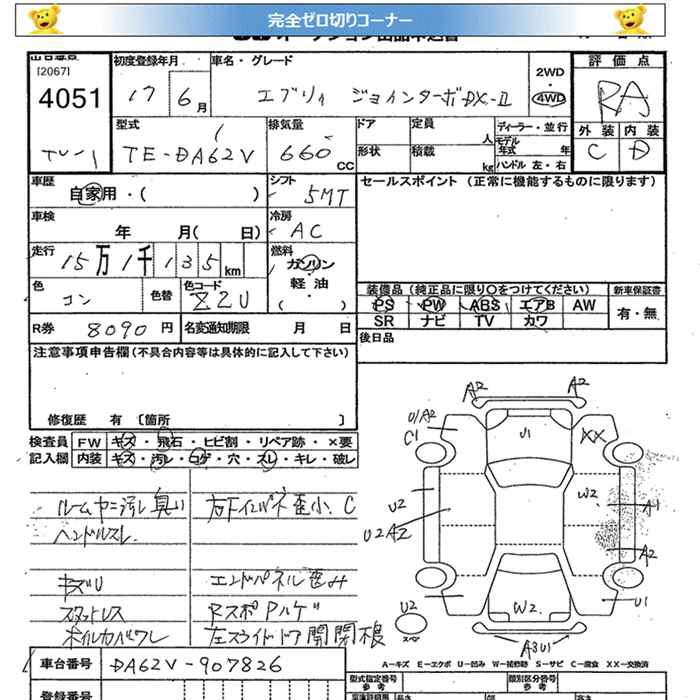 完全ゼロ切りコーナー
[2067]
4051
初度登録年月
17 6月
車名・グレード
エブリィ ジョインターボDX-II
2WD
4WD
評価点
RA
外装 内装
C D
型式
TE-DA62V
排気量
660 CC
ドア
定員 人
形状
積載 kg
ディーラー・並行
モデル年式 年
ハンドル 左・右
車歴
自家用・( )
シフト
5MT
セールスポイント (正常に機能するものに限ります)
車検
年 月( 日)
冷房
AC
走行
15万1千135km
燃料
ガソリン
軽油
( )
色
コン
色替
色コード
ZZU
装備品(純正品に限り○をつけてください)
PS PW ABS エアB AW
SR ナビ TV カワ
新車保証書
有・無
R券 8090円
名変通知期限 月 日
後日品
注意事項申告欄(不具合内容等は具体的に記入して下さい)
修復歴 有 [箇所 ]
検査員記入欄
FW キズ・飛石・ヒビ割・リペア跡・×要
内装 キズ・汚レ・コゲ・穴・スレ・キレ・破レ
ルームヤニ汚レ臭い
ハンドルスレ
キズU
スタットレス
ホイルカバワレ
右下インパネ歪小、C
エンドパネル歪み
RスポPハゲ
左スライドドア開閉根
A2 A2
U/A2
C1
U1
XX
U2
W2
A1
U2A2
A2
W2
U1
U2
スペヤ
A3U1
A-キズ E-エクボ U-凹み W-補修跡 S-サビ C-腐食 XX-交換済
車台番号
DA62V-907826
型式指定番号
参考
類別区分番号
参考
登録番号